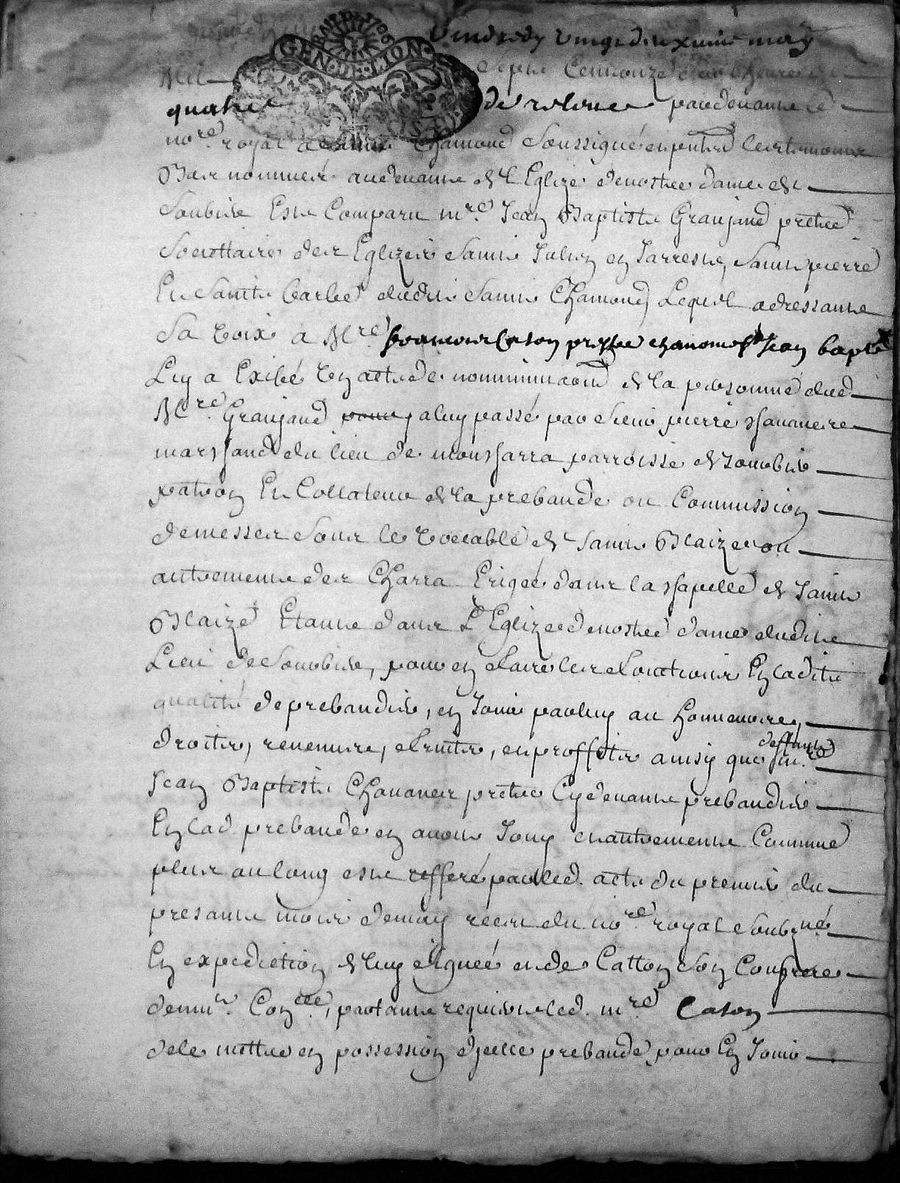 GEN·DE·LION
Vendredy vingt deuxieme may
Mil sept cent onze
quatre de relevée pardevant le
no.re royal a Saint Chamond soussigné en pntce des tesmoins
Bas nommés audevant de l'Eglize de nostre dame de
Soubise Est Comparu m.re Jean Baptiste Granjand prestre
Societtaire des Eglizes Saint Julien en Jarrest, Saint pierre
Et Sainte barbe dudit Saint Chamond, Lequel adressant
Sa voix a M.re Caton prestre Jean bapt
Luy a Exibé un acte de nommination de la personne dud
M.re Granjand a luy passé par sieur pierre
marchand du lieu de parroisse de Soubise
patron Et Collateur de la prebande ou Commission
de messes sous le vocable de Saint Blaize ou
autrement des Charra Erigée dans la chapelle de Saint
Blaize Etant dans L'Eglize de nostre dame dudit
Lieu de Soubise, pour en faire les fonctions En ladite
qualité de prebandier, en Jouir par luy au honneurs,
droits, revenus, fruits, en proffits ainsy que deffunt m.re
Jean Baptiste Chavanes prestre Cydevant prebandier
En lad. prebande en avoit Jouy et autrement Comme
plus au long est refferé par led. acte du premier du
presant mois de may receu du no.re royal soubsigné
En expedition de luy signée et de Catton son Confrere
partant requis led. m.re Caton
de le mettre en possession d'jcelle prebande pour En Jouir